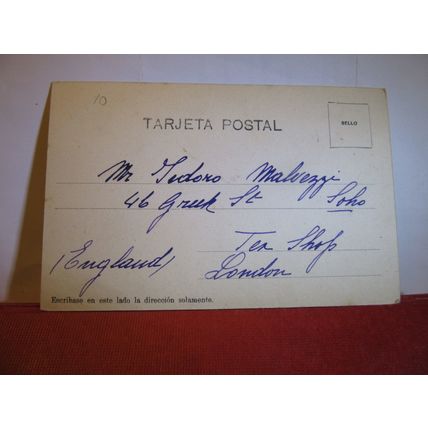 10
TARJETA POSTAL
SELLO
Mr Isidoro Malvezzi
46 Greek St Soho
Tea Shop
(England)
London
Escríbase en este lado la dirección solamente.